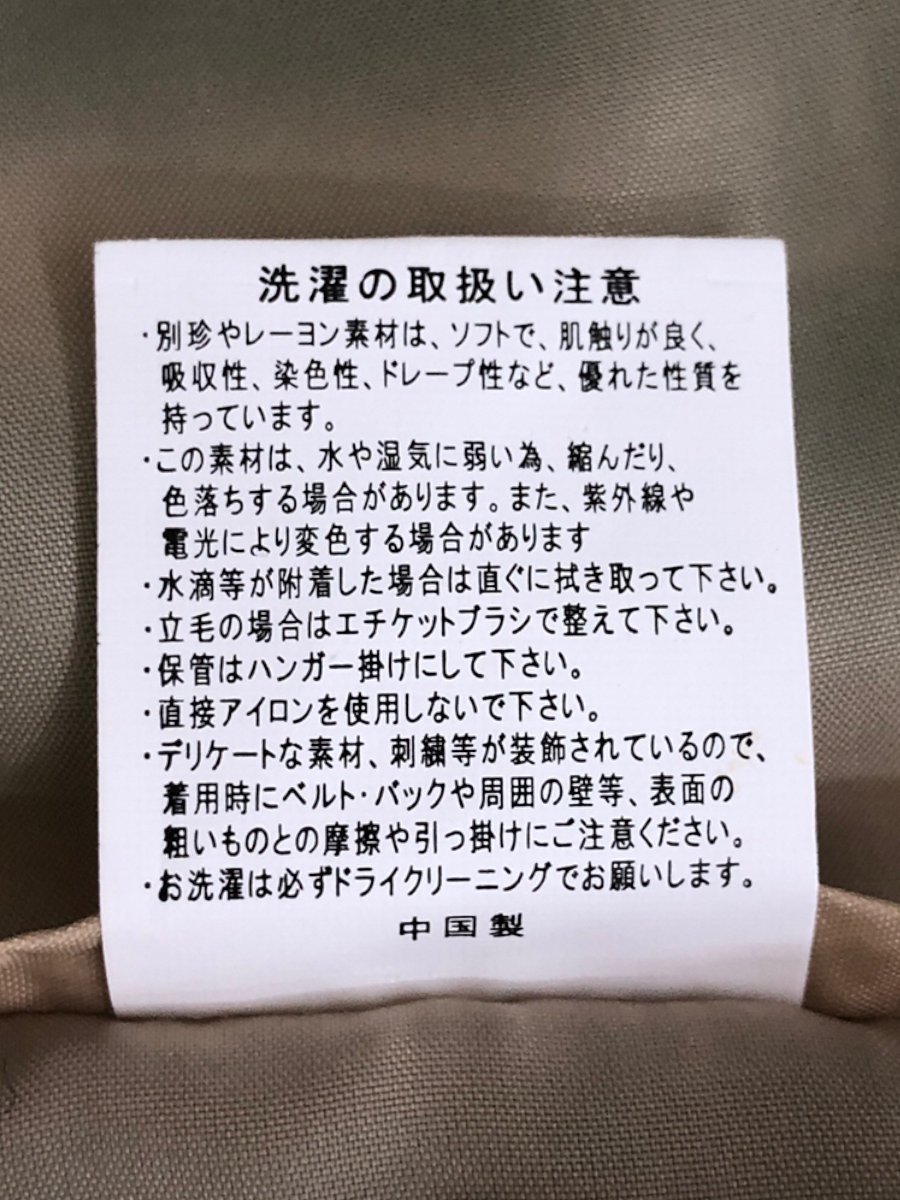 洗濯の取扱い注意
・別珍やレーヨン素材は、ソフトで、肌触りが良く、
吸収性、染色性、ドレープ性など、優れた性質を
持っています。
・この素材は、水や湿気に弱い為、縮んだり、
色落ちする場合があります。また、紫外線や
電光により変色する場合があります
・水滴等が附着した場合は直ぐに拭き取って下さい。
・立毛の場合はエチケットブラシで整えて下さい。
・保管はハンガー掛けにして下さい。
・直接アイロンを使用しないで下さい。
・デリケートな素材、刺繍等が装飾されているので、
着用時にベルト・バックや周囲の壁等、表面の
粗いものとの摩擦や引っ掛けにご注意ください。
・お洗濯は必ずドライクリーニングでお願いします。
中国製